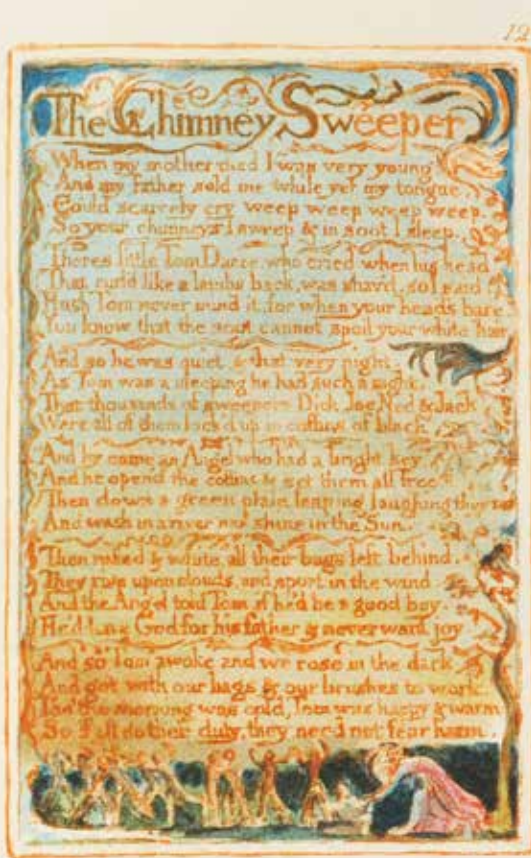 12
The Chimney Sweeper
When my mother died I was very young
And my father sold me while yet my tongue,
Could scarcely cry weep weep weep weep.
So your chimneys I sweep & in soot I sleep.
Theres little Tom Dacre, who cried when his head
That curl'd like a lambs back, was shav'd, so I said
Hush Tom never mind it, for when your head's bare
You know that the soot cannot spoil your white hair
And so he was quiet, & that very night,
As Tom was a sleeping he had such a sight,
That thousands of sweepers Dick, Joe, Ned & Jack
Were all of them lock'd up in coffins of black
And by came an Angel who had a bright key
And he open'd the coffins & set them all free
Then down a green plain leaping laughing they run
And wash in a river and shine in the Sun.
Then naked & white, all their bags left behind.
They rise upon clouds, and sport in the wind
And the Angel told Tom, if he'd be a good boy,
He'd have God for his father & never want joy
And so Tom awoke and we rose in the dark
And got with our bags & our brushes to work.
Tho' the morning was cold, Tom was happy & warm
So if all do their duty, they need not fear harm.